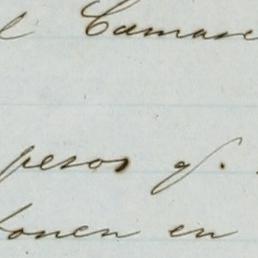 l Camare
pesos q.
bonen en